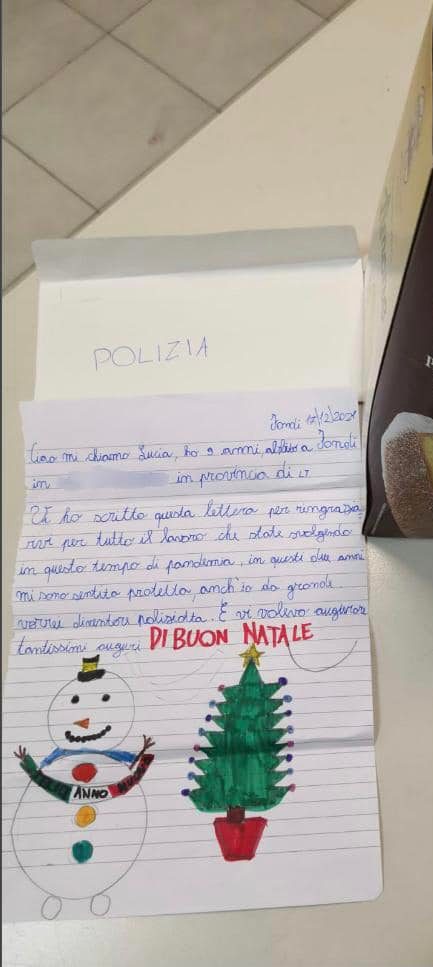 POLIZIA
Fondi 17/12/2021
Ciao mi chiamo Lucia, ho 9 anni, abito a Fondi
in in provincia di LT
Vi ho scritto questa lettera per ringrazia
rvi per tutto il lavoro che state svolgendo
in questo tempo di pandemia, in questi due anni
mi sono sentita protetta, anch'io da grande
vorrei diventare poliziotta. E vi volevo augurare
tantissimi auguri DI BUON NATALE
FELICE ANNO NUOVO